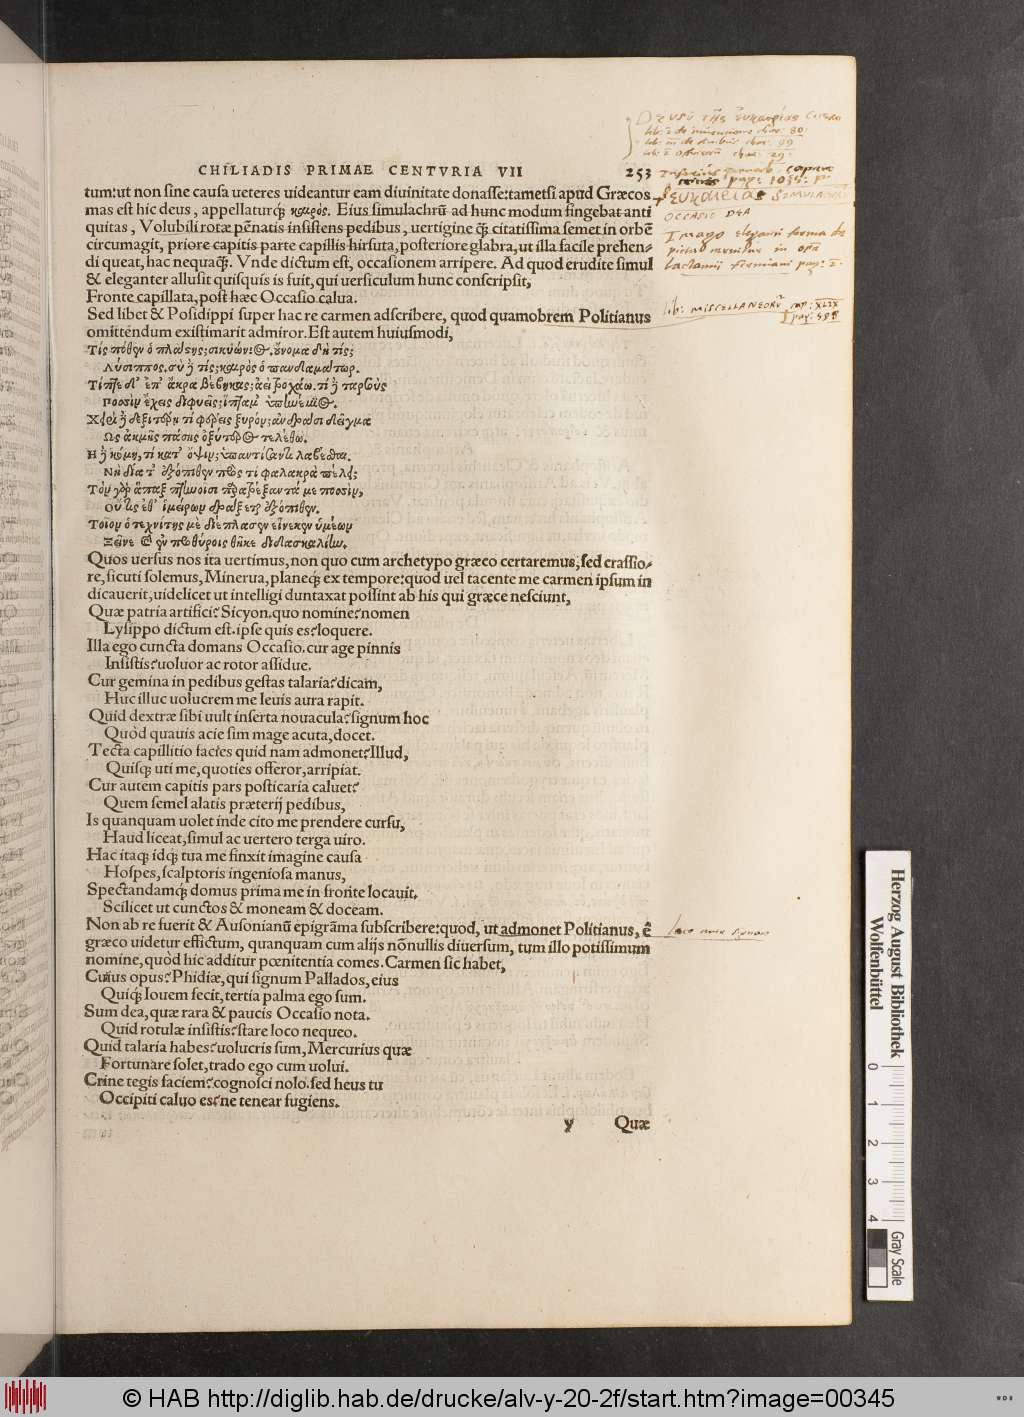 CHILIADIS PRIMAE CENTVRIA VII 253
tum:ut non sine causa ueteres uideantur eam diuinitate donasse:tametsi apud Græcos
mas est hic deus, appellaturq́; καιρός. Eius simulachrũ ad hunc modum fingebat anti
quitas, Volubili rotæ pẽnatis insistens pedibus, uertigine q́; citatissima semet in orbẽ
circumagit, priore capitis parte capillis hirsuta, posteriore glabra, ut illa facile prehen-
di queat, hac nequaq̃. Vnde dictum est, occasionem arripere. Ad quod erudite simul
& eleganter allusit quisquis is fuit, qui uersiculum hunc conscripsit,
Fronte capillata, post hæc Occasio calua.
Sed libet & Posidippi super hac re carmen adscribere, quod quamobrem Politianus
omittendum existimarit admiror. Est autem huiusmodi,
Τίς πόθεν ὁ πλάστης; σικυώνιος. οὔνομα δὴ τίς;
Λύσιππος. σὺ δὲ τίς; καιρὸς ὁ πανδαμάτωρ.
Τίπτε δ' ἐπ' ἄκρα βέβηκας; ἀεὶ τροχάω. τί δὲ ταρσοὺς
ποσσὶν ἔχεις διφυεῖς; ἵπταμ' ὑπηνέμιος.
Χειρὶ δὲ δεξιτερῇ τί φέρεις ξυρόν; ἀνδράσι δεῖγμα
Ως ἀκμῆς πάσης ὀξύτερος τελέθω.
Η δὲ κόμη, τί κατ' ὄψιν; ὑπαντιάσαντι λαβέσθαι.
Νὴ δία τ' ἐξόπιθεν πρὸς τί φαλακρὰ πέλει;
Τὸν γὰρ ἅπαξ πτηνοῖσι παραθρέξαντά με ποσσὶν,
Οὔτις ἔθ' ἱμείρων δράξεται ἐξόπιθεν.
Τοῖον ὁ τεχνίτης με διέπλασεν εἵνεκεν ὑμέων
Ξεῖνε καὶ ἐν προθύροις θῆκε διδασκαλίην.
Quos uersus nos ita uertimus, non quo cum archetypo græco certaremus, sed crassio-
re, sicuti solemus, Minerua, planeq́; ex tempore: quod uel tacente me carmen ipsum in
dicauerit, uidelicet ut intelligi duntaxat possint ab his qui græce nesciunt,
Quæ patria artifici? Sicyon. quo nomine? nomen
Lysippo dictum est. ipse quis es? loquere.
Illa ego cuncta domans Occasio. cur age pinnis
Insistis? uoluor ac rotor assidue.
Cur gemina in pedibus gestas talaria? dicam,
Huc illuc uolucrem me leuis aura rapit.
Quid dextræ sibi uult inserta nouacula? signum hoc
Quòd quauis acie sim mage acuta, docet.
Tecta capillitio facies quid nam admonet? Illud,
Quisq; uti me, quoties offeror, arripiat.
Cur autem capitis pars posticaria caluet?
Quem semel alatis præterij pedibus,
Is quanquam uolet inde cito me prendere cursu,
Haud liceat, simul ac uertero terga uiro.
Hac itaq; idq́; tua me finxit imagine causa
Hospes, scalptoris ingeniosa manus,
Spectandamq́; domus prima me in fronte locauit.
Scilicet ut cunctos & moneam & doceam.
Non ab re fuerit & Ausonianũ epigrãma subscribere: quod, ut admonet Politianus, ẽ
græco uidetur effictum, quanquam cum alijs nõnullis diuersum, tum illo potissimum
nomine, quòd hic additur pœnitentia comes. Carmen sic habet,
Cuius opus? Phidiæ, qui signum Pallados, eius
Quiq́; Iouem fecit, tertia palma ego sum.
Sum dea, quæ rara & paucis Occasio nota.
Quid rotulæ insistis? stare loco nequeo.
Quid talaria habes? uolucris sum, Mercurius quæ
Fortunare solet, trado ego cum uolui.
Crine tegis faciem? cognosci nolo. sed heus tu
Occipiti caluo es? ne tenear fugiens.
y Quæ
De usu τῆς εὐκαιρίας Cicero
lib: 2 de inuentione char. 80.
char. 99
char. 29.
pag: 1035:
Εὐκαιρίας SIMULACHRUM
OCCASIO DEA
Imago eleganti forma de
picta in
Lactantii Firmiani pag: 2.
lib: MISCELLANEORũ cap: XLIX
pag: 581
Herzog August Bibliothek
Wolfenbüttel
0 1 2 3 4
Gray Scale
© HAB http://diglib.hab.de/drucke/alv-y-20-2f/start.htm?image=00345